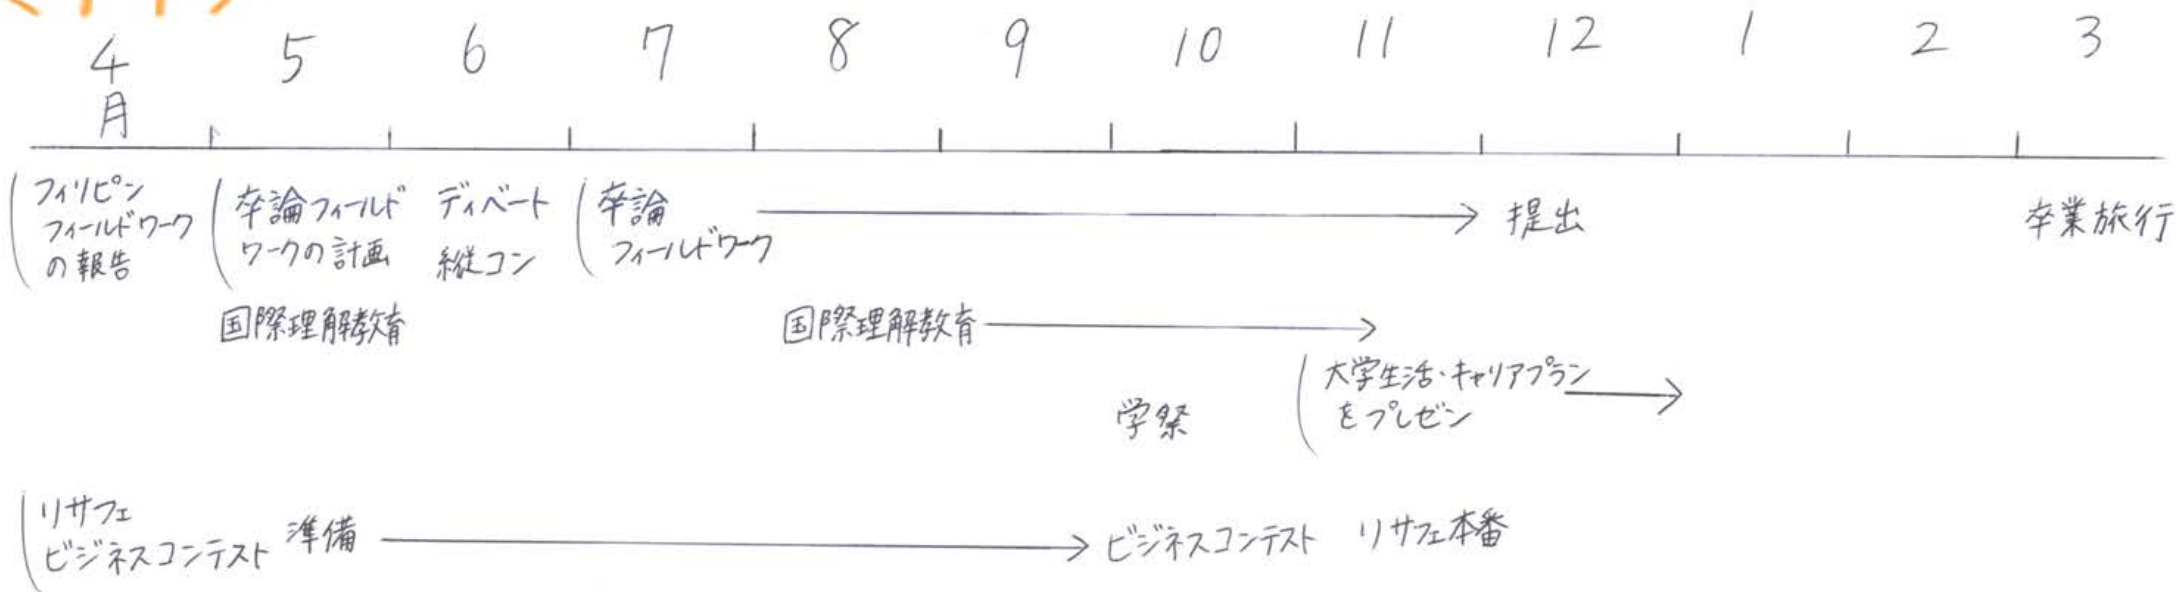 4月 5 6 7 8 9 10 11 12 1 2 3
フィリピン
フィールドワーク
の報告
卒論フィールド
ワークの計画
ディベート
縦コン
卒論
フィールドワーク
提出
卒業旅行
国際理解教育
国際理解教育
学祭
大学生活・キャリアプラン
をプレゼン
リサフェ
ビジネスコンテスト 準備
ビジネスコンテスト リサフェ本番